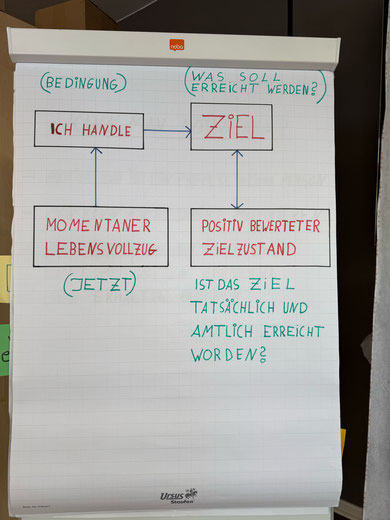 nobo
(BEDINGUNG)
(WAS SOLL
ERREICHT WERDEN?)
ICH HANDLE
ZIEL
MOMENTANER
LEBENSVOLLZUG
POSITIV BEWERTETER
ZIELZUSTAND
(JETZT)
IST DAS ZIEL
TATSÄCHLICH UND
AMTLICH ERREICHT
WORDEN?
Ursus
Staufen